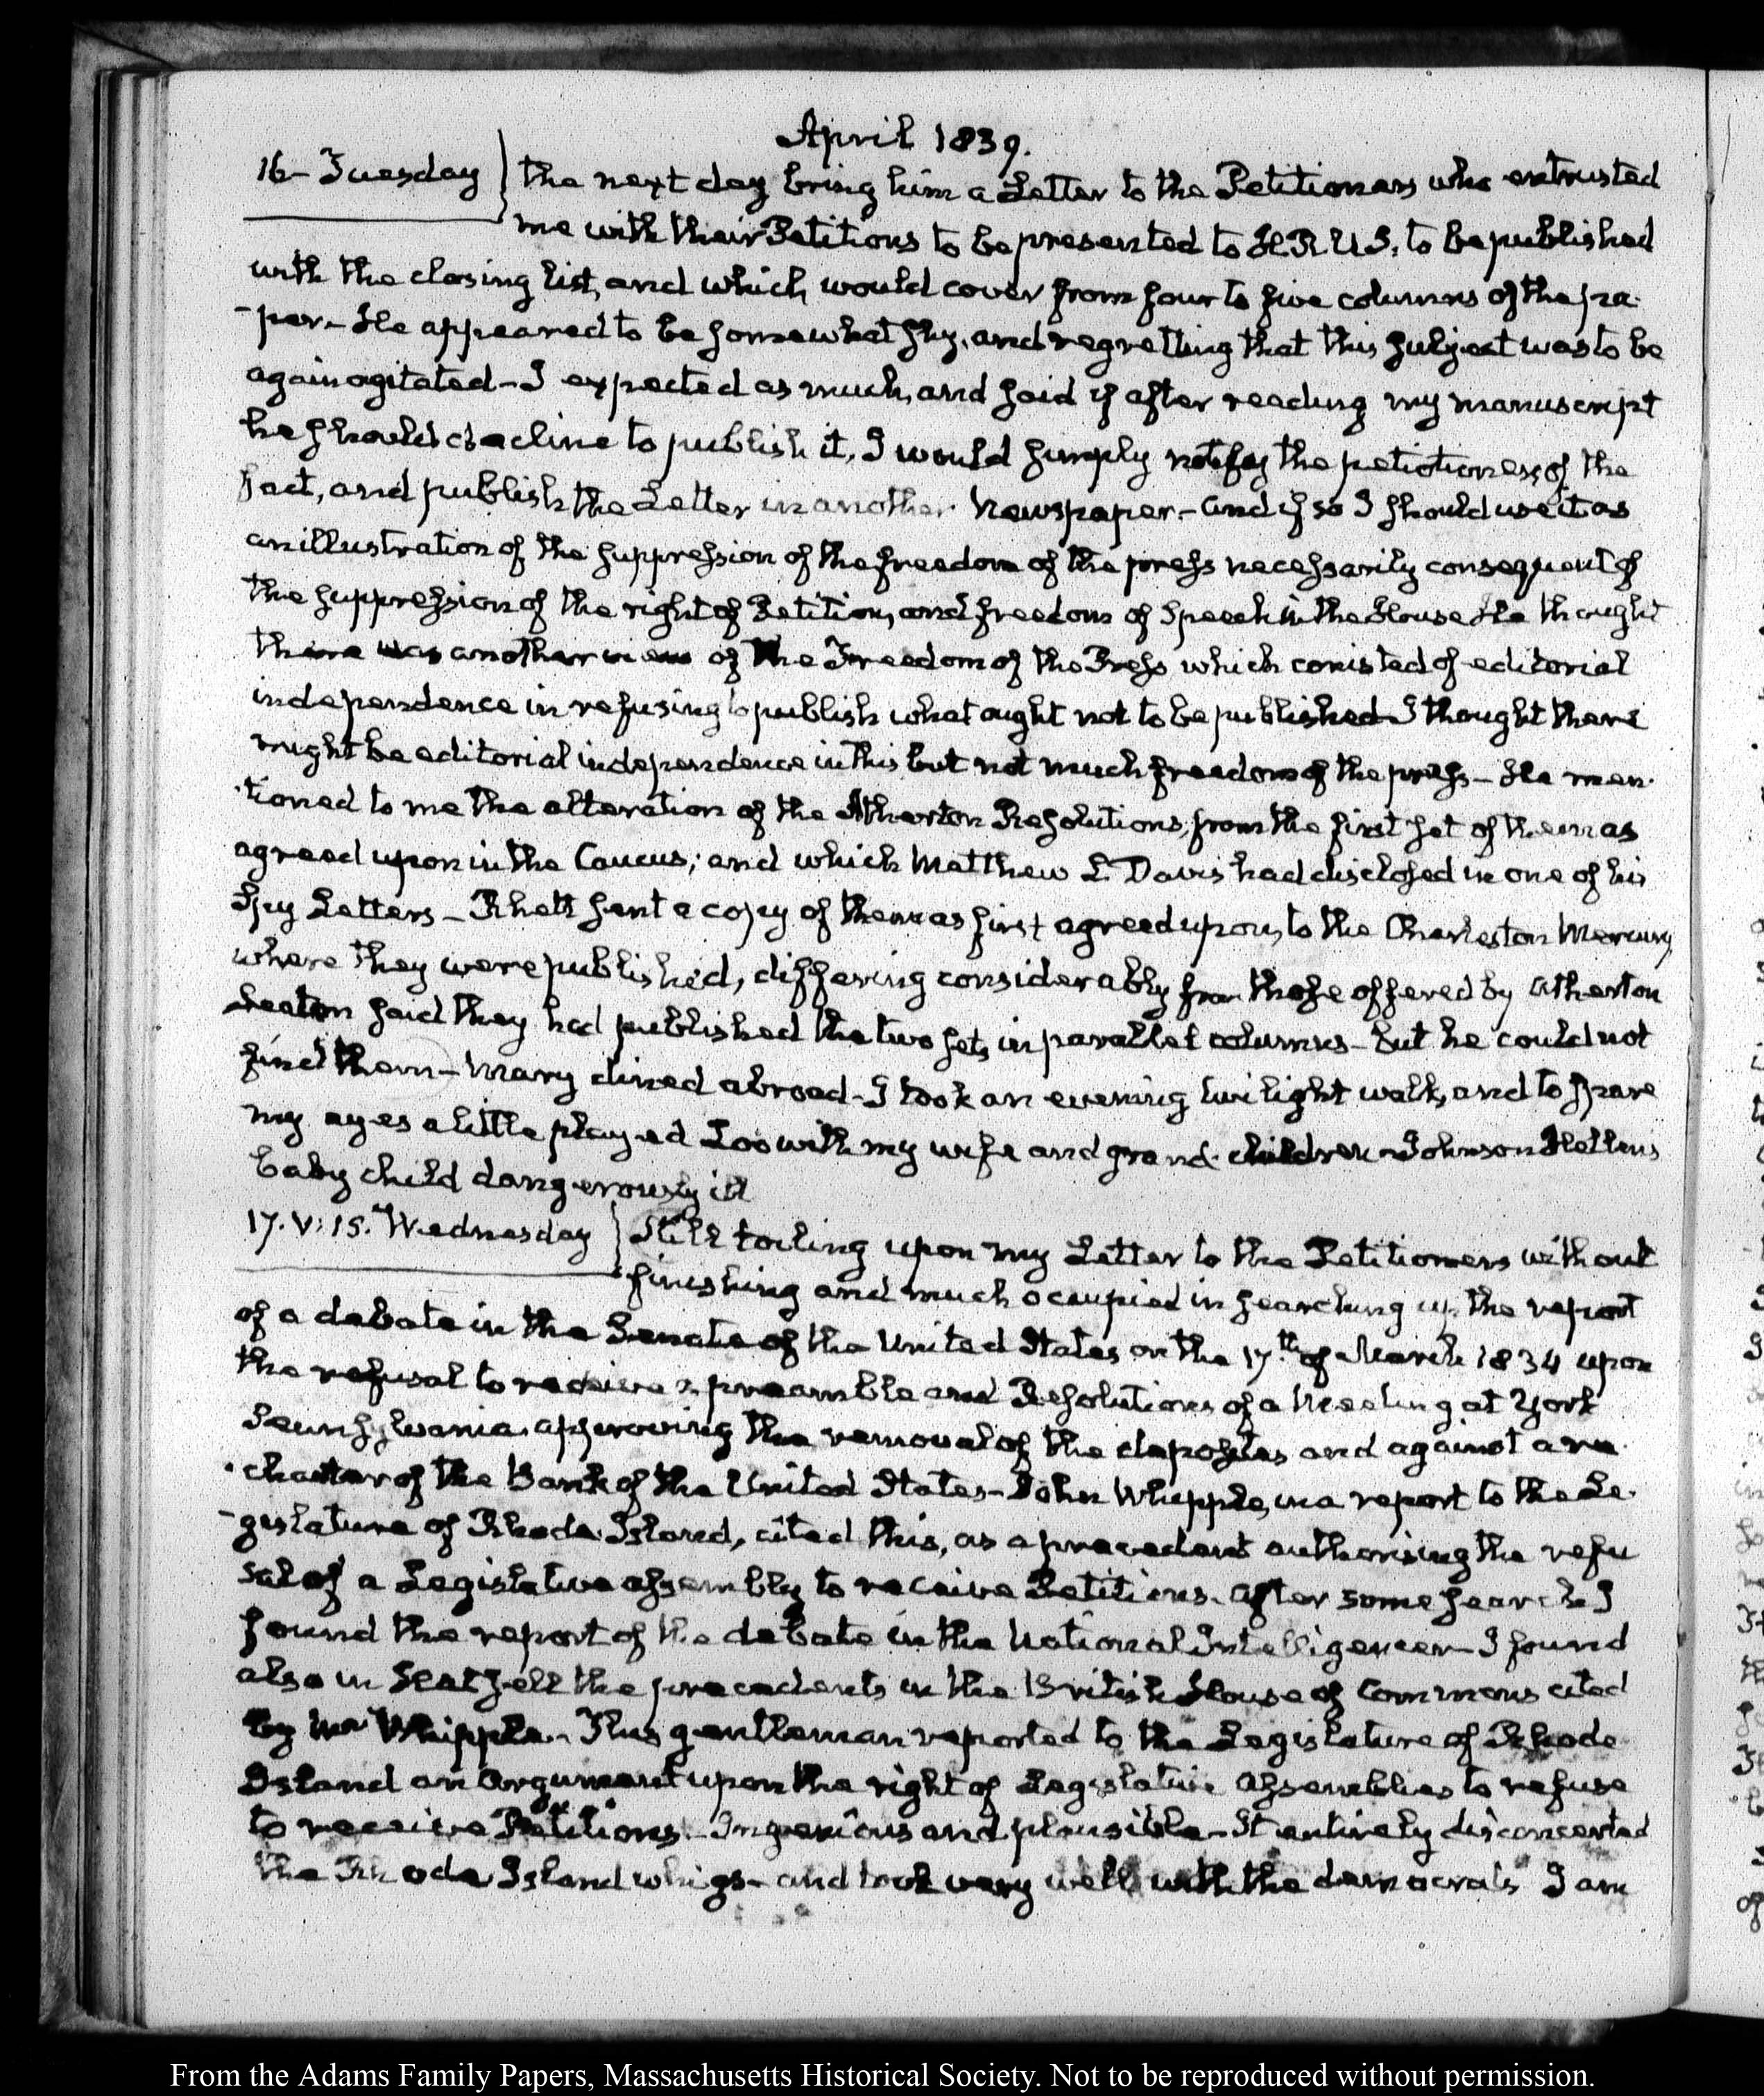 April 1839.
16 - Tuesday } the next day bring him a Letter to the Petitioners who entrusted
me with their Petitions to be presented to H.R.U.S. to be published
with the closing list, and which would cover from four to five columns of the pa-
-per. He appeared to be somewhat shy, and regretting that this subject was to be
again agitated - I expected as much, and said if after reading my manuscript
he should decline to publish it, I would simply notify the petitioners of the
fact, and publish the Letter in another Newspaper - and if so I should use it as
an illustration of the suppression of the freedom of the press necessarily consequent of
the suppression of the right of Petition, and freedom of Speech in the House He thought
there was another view of the Freedom of the Press which conisted of editorial
independence in refusing to publish what ought not to be published - I thought there
might be editorial independence in this but not much freedom of the press - He men-
-tioned to me the alteration of the Atherton Resolutions, from the first set of them as
agreed upon in the Caucus; and which Matthew L Davis had disclosed in one of his
Spy Letters - Rhett sent a copy of them as first agreed upon, to the Charleston Mercury
where they were published, differing considerably from those offered by Atherton
Seaton said they had published the two sets in parallel columns - but he could not
find them - Mary dined abroad - I took an evening twilight walk, and to spare
my eyes a little played Loo with my wife and grand-children - Johnson Hellen's
baby child dangerously ill
17. V:15. Wednesday } Still toiling upon my Letter to the Petitioners without
finishing and much occupied in searching up the report
of a debate in the Senate of the United States on the 17th of March 1834 upon
the refusal to receive a preamble and Resolutions of a Meeting at York
Pennsylvania approving the removal of the deposites and against a re-
-charter of the Bank of the United States - John Whipple, in a report to the Le-
-gislature of Rhode Island, cited this, as a precedent authorising the refu
sal of a Legislative assembly to receive Petitions. After some search I
found the report of the debate in the National Intelligencer - I found
also in Hatsell the precedents in the British House of Commons cited
by Mr Whipple. This gentleman reported to the Legislature of Rhode
Island an Argument upon the right of Legislative Assemblies to refuse
to receive Petitions - Ingenious and plausible - It entirely disconcerted
the Rhode Island whigs - and took very well with the democrats I am
From the Adams Family Papers, Massachusetts Historical Society. Not to be reproduced without permission.